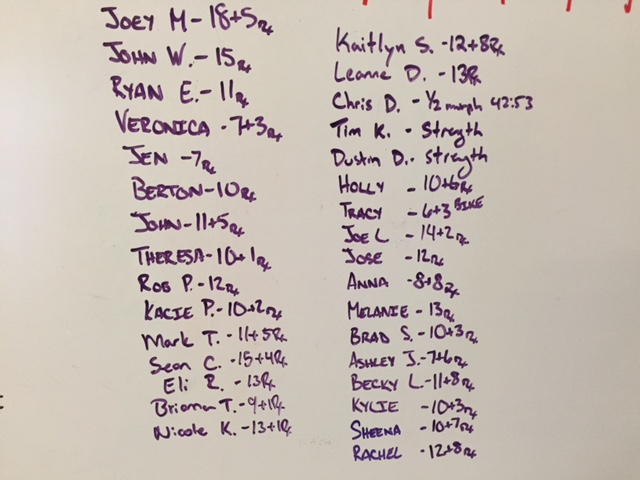 JOEY M - 18+5 Rx
JOHN W. - 15 Rx
RYAN E. - 11 Rx
VERONICA - 7+3 Rx
JEN - 7 Rx
BERTON - 10 Rx
JOHN - 11+5 Rx
THERESA - 10+1 Rx
ROB P. - 12 Rx
KACIE P. - 10+2 Rx
Mark T. - 11+5 Rx
Sean C. - 15+4 Rx
Eli R. - 13 Rx
Brianna T. - 9+1 Rx
Nicole K. - 13+1 Rx
Kaitlyn S. - 12+8 Rx
Leanne D. - 13 Rx
Chris D. - 1/2 murph 42:53
Tim K. - Strength
Dustin D. - Strength
HOLLY - 10+6 Rx
TRACY - 6+3 BIKE
JOE L - 14+2 Rx
JOSE - 12 Rx
ANNA - 8+8 Rx
MELANIE - 13 Rx
BRAD S. - 10+3 Rx
ASHLEY J. - 7+6 Rx
BECKY L - 11+8 Rx
KYLIE - 10+3 Rx
SHEENA - 10+7 Rx
RACHEL - 12+8 Rx